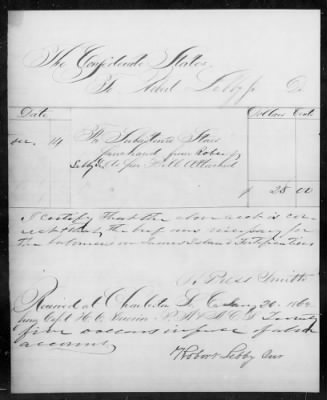 The Confederate States.
To Robert Lebby Jr Dr
Date Dollars Cents
14 To Subsistence Stores
purchased from Robert
Lebby as per Bill Attached
$ 25 00
I certify that the above acct is cor-
rect & that the beef was necessary for
the laborers on James Island Fortifications
Press Smith
Received at Charleston S. C. Jany 26. 186
from Capt H. C. Twenty
five dollars in full of above
account.
Robert Lebby Jur